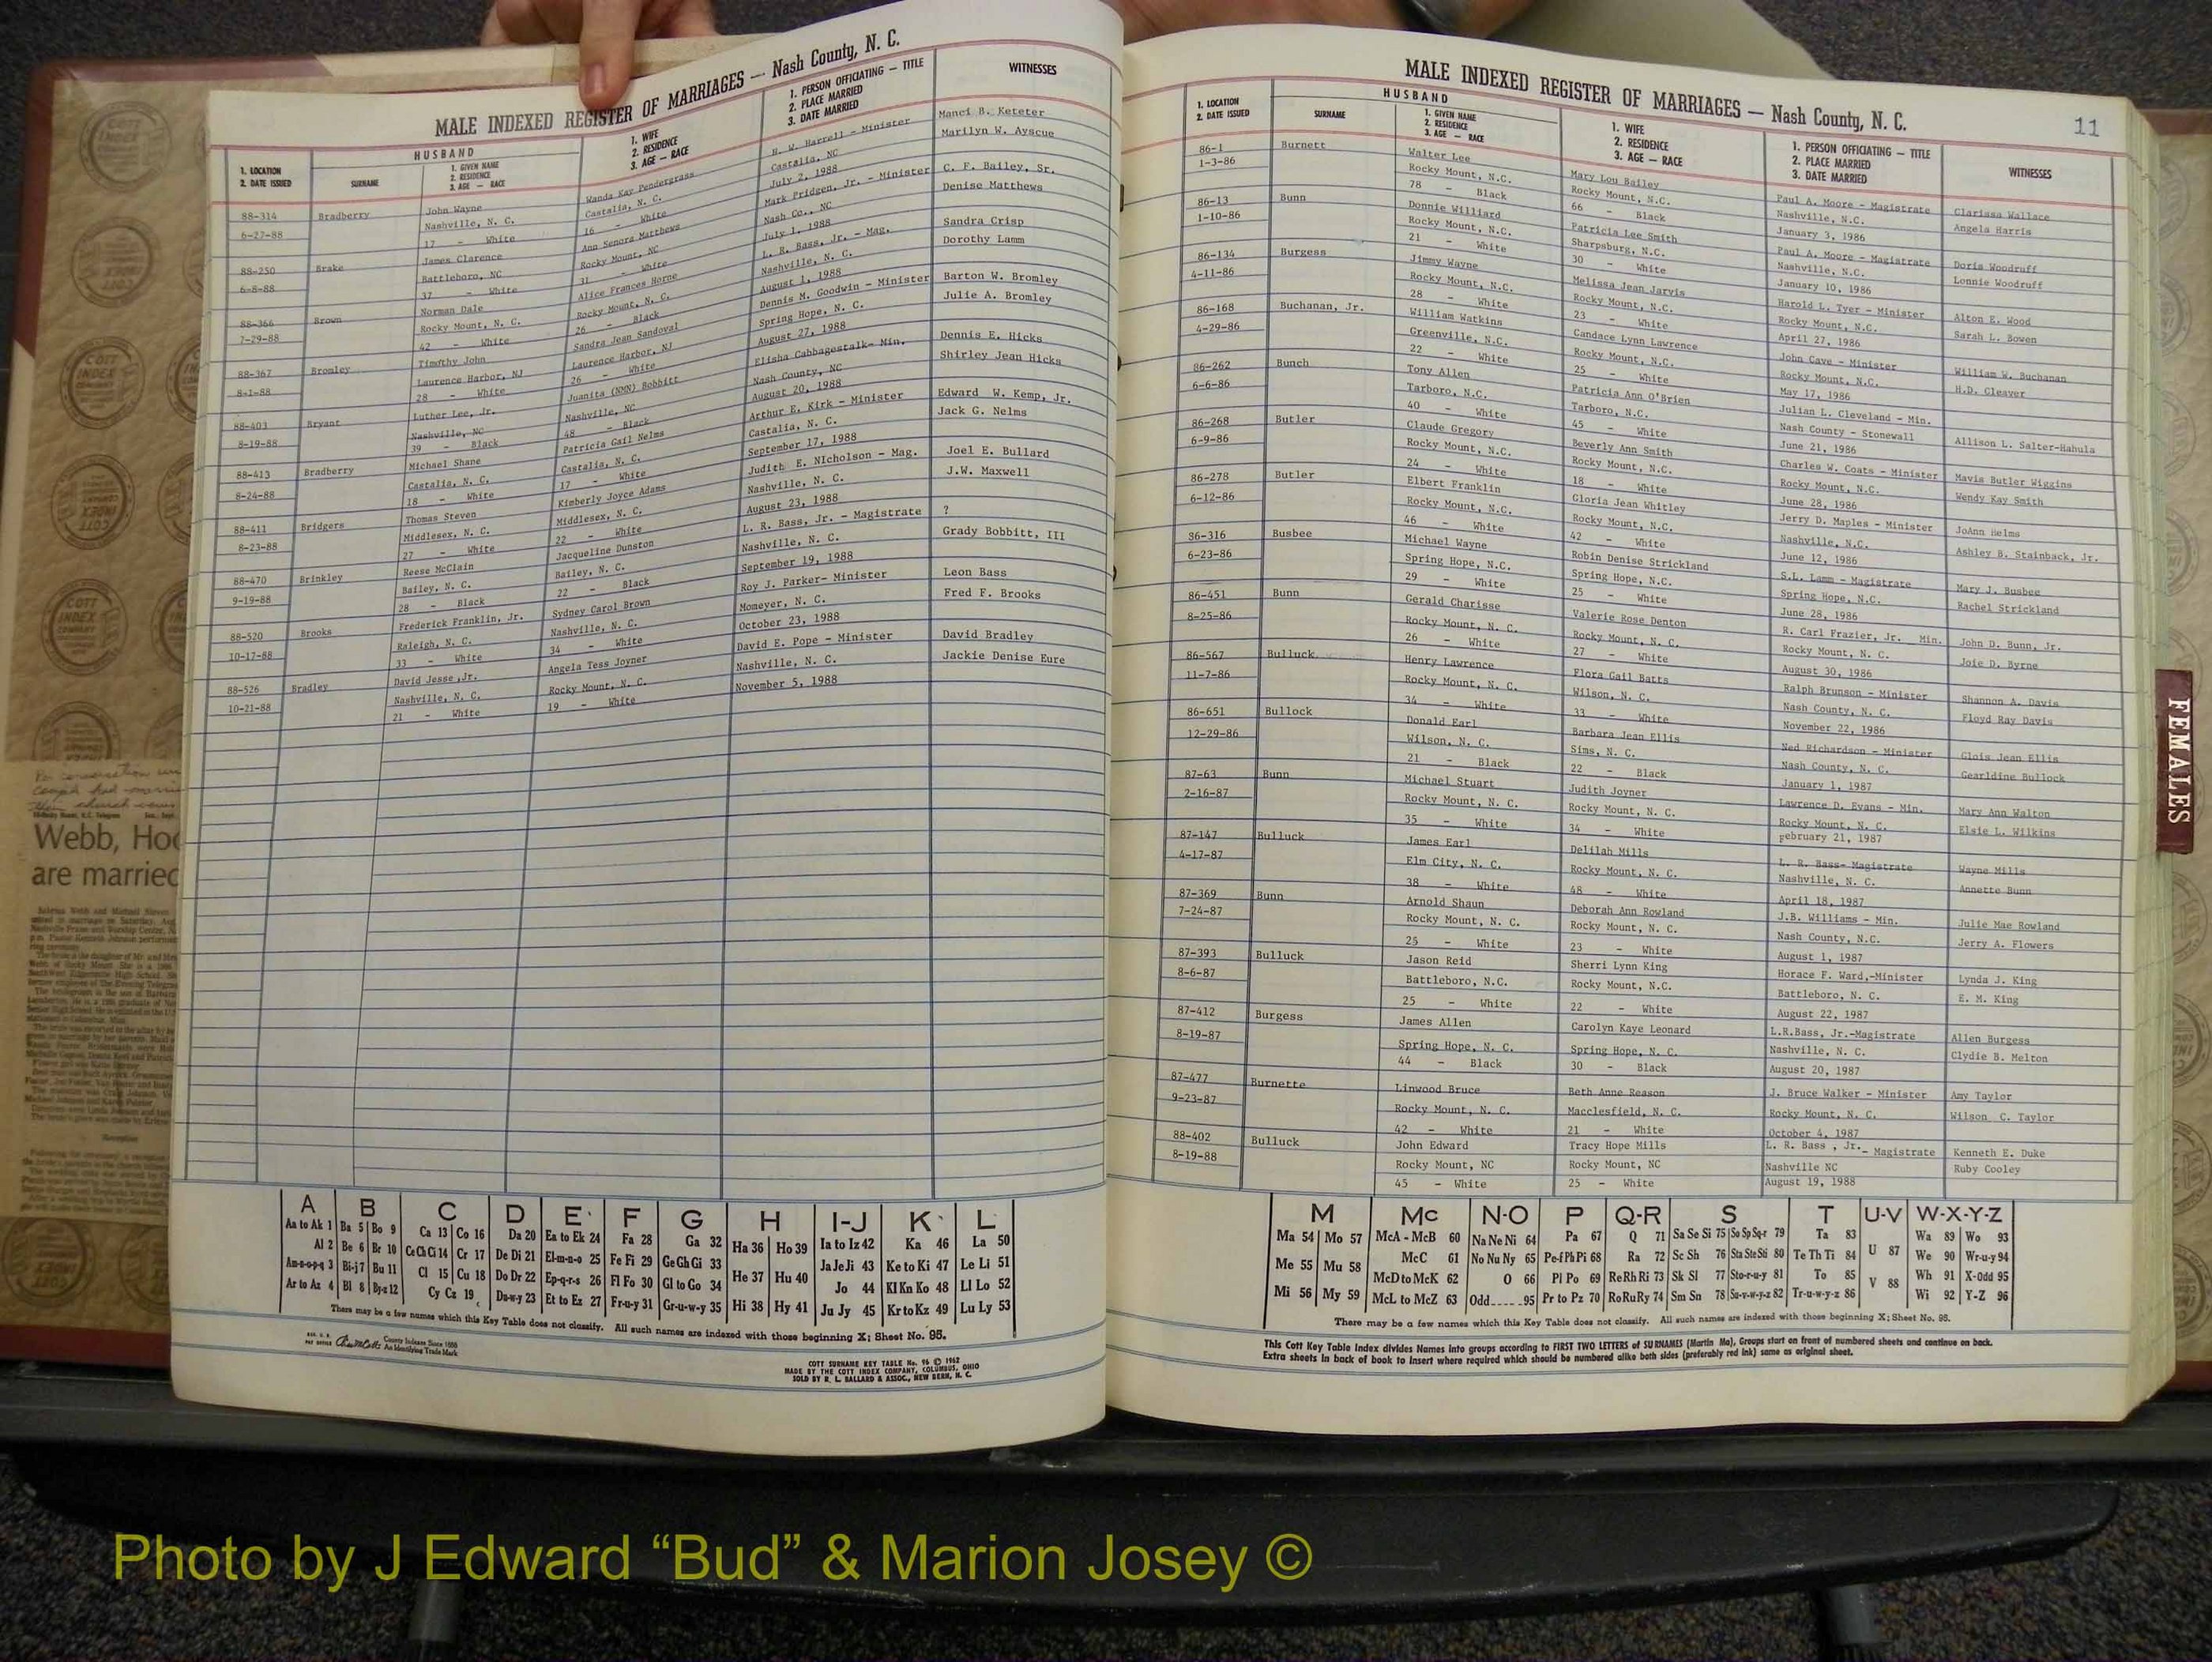 MALE INDEXED REGISTER OF MARRIAGES — Nash County, N. C.
HUSBAND
1. LOCATION
2. DATE ISSUED
SURNAME
1. GIVEN NAME
2. RESIDENCE
3. AGE — RACE
1. WIFE
2. RESIDENCE
3. AGE — RACE
1. PERSON OFFICIATING — TITLE
2. PLACE MARRIED
3. DATE MARRIED
WITNESSES
88-314 Bradberry John Wayne Wanda Kay Pendergrass H. W. Harrell - Minister Manci B. Keteter
6-27-88 Nashville, N. C. Castalia, N. C. Castalia, NC Marilyn W. Ayscue
17 - White 16 - White July 2, 1988
88-250 Brake James Clarence Ann Senora Matthews Mark Pridgen, Jr. - Minister C. F. Bailey, Sr.
6-8-88 Battleboro, NC Rocky Mount, NC Nash Co., NC Denise Matthews
37 - White 31 - White July 1, 1988
88-366 Brown Norman Dale Alice Frances Horne L. R. Bass, Jr. - Mag. Sandra Crisp
7-29-88 Rocky Mount, N. C. Rocky Mount, N. C. Nashville, N. C. Dorothy Lamm
42 - White 26 - Black August 1, 1988
88-367 Bromley Timothy John Sandra Jean Sandoval Dennis M. Goodwin - Minister Barton W. Bromley
8-1-88 Laurence Harbor, NJ Laurence Harbor, NJ Spring Hope, N. C. Julie A. Bromley
28 - White 26 - White August 27, 1988
88-403 Bryant Luther Lee, Jr. Juanita (NMN) Bobbitt Elisha Cabbagestalk- Min. Dennis E. Hicks
8-19-88 Nashville, NC Nashville, NC Nash County, NC Shirley Jean Hicks
39 - Black 48 - Black August 20, 1988
88-413 Bradberry Michael Shane Patricia Gail Nelms Arthur E. Kirk - Minister Edward W. Kemp, Jr.
8-24-88 Castalia, N. C. Castalia, N. C. Castalia, N. C. Jack G. Nelms
18 - White 17 - White September 17, 1988
88-411 Bridgers Thomas Steven Kimberly Joyce Adams Judith E. NIcholson - Mag. Joel E. Bullard
8-23-88 Middlesex, N. C. Middlesex, N. C. Nashville, N. C. J.W. Maxwell
27 - White 22 - White August 23, 1988
88-470 Brinkley Reese McClain Jacqueline Dunston L. R. Bass, Jr. - Magistrate ?
9-19-88 Bailey, N. C. Bailey, N. C. Nashville, N. C. Grady Bobbitt, III
28 - Black 22 - Black September 19, 1988
88-520 Brooks Frederick Franklin, Jr. Sydney Carol Brown Roy J. Parker- Minister Leon Bass
10-17-88 Raleigh, N. C. Nashville, N. C. Momeyer, N. C. Fred F. Brooks
33 - White 34 - White October 23, 1988
88-526 Bradley David Jesse,Jr. Angela Tess Joyner David E. Pope - Minister David Bradley
10-21-88 Nashville, N. C. Rocky Mount, N. C. Nashville, N. C. Jackie Denise Eure
21 - White 19 - White November 5, 1988
A B C D E F G H I-J K L
Aa to Ak 1 Ba 5 Bo 9 Ca 13 Co 16 Da 20 Ea to Ek 24 Fa 28 Ga 32 Ha 36 Ho 39 Ia to Iz 42 Ka 46 La 50
Al 2 Be 6 Br 10 Ce Ch Ci 14 Cr 17 De Di 21 El-m-n-o 25 Fe Fi 29 Ge Gh Gi 33 He 37 Hu 40 Ja Je Ji 43 Ke to Ki 47 Le Li 51
Am-n-o-p-q 3 Bi-j 7 Bu 11 Cl 15 Cu 18 Do Dr 22 Ep-q-r-s 26 Fl Fo 30 Gl to Go 34 Jo 44 Kl Kn Ko 48 Ll Lo 52
Ar to Az 4 Bl 8 By-z 12 Cy Cz 19 Du-w-y 23 Et to Ez 27 Fr-u-y 31 Gr-u-w-y 35 Hi 38 Hy 41 Ju Jy 45 Kr to Kz 49 Lu Ly 53
There may be a few names which this Key Table does not classify. All such names are indexed with those beginning X; Sheet No. 95.
County Indexes Since 1888
An Identifying Trade Mark
COTT SURNAME KEY TABLE No. 96 © 1962
MADE BY THE COTT INDEX COMPANY, COLUMBUS, OHIO
SOLD BY R. L. BALLARD & ASSOC., NEW BERN, N. C.
MALE INDEXED REGISTER OF MARRIAGES — Nash County, N. C.
11
HUSBAND
1. LOCATION
2. DATE ISSUED
SURNAME
1. GIVEN NAME
2. RESIDENCE
3. AGE — RACE
1. WIFE
2. RESIDENCE
3. AGE — RACE
1. PERSON OFFICIATING — TITLE
2. PLACE MARRIED
3. DATE MARRIED
WITNESSES
86-1 Burnett Walter Lee Mary Lou Bailey Paul A. Moore - Magistrate Clarissa Wallace
1-3-86 Rocky Mount, N.C. Rocky Mount, N.C. Nashville, N.C. Angela Harris
78 - Black 66 - Black January 3, 1986
86-13 Bunn Donnie Williard Patricia Lee Smith Paul A. Moore - Magistrate Doris Woodruff
1-10-86 Rocky Mount, N.C. Sharpsburg, N.C. Nashville, N.C. Lonnie Woodruff
21 - White 30 - White January 10, 1986
86-134 Burgess Jimmy Wayne Melissa Jean Jarvis Harold L. Tyer - Minister Alton E. Wood
4-11-86 Rocky Mount, N.C. Rocky Mount, N.C. Rocky Mount, N.C. Sarah L. Bowen
28 - White 23 - White April 27, 1986
86-168 Buchanan, Jr. William Watkins Candace Lynn Lawrence John Cave - Minister William W. Buchanan
4-29-86 Greenville, N.C. Rocky Mount, N.C. Rocky Mount, N.C. H.D. Cleaver
22 - White 25 - White May 17, 1986
86-262 Bunch Tony Allen Patricia Ann O'Brien Julian L. Cleveland - Min. Allison L. Salter-Hahula
6-6-86 Tarboro, N.C. Tarboro, N.C. Nash County - Stonewall
40 - White 45 - White June 21, 1986
86-268 Butler Claude Gregory Beverly Ann Smith Charles W. Coats - Minister Mavis Butler Wiggins
6-9-86 Rocky Mount, N.C. Rocky Mount, N.C. Rocky Mount, N.C. Wendy Kay Smith
24 - White 18 - White June 28, 1986
86-278 Butler Elbert Franklin Gloria Jean Whitley Jerry D. Maples - Minister JoAnn Helms
6-12-86 Rocky Mount, N.C. Rocky Mount, N.C. Nashville, N.C. Ashley B. Stainback, Jr.
46 - White 42 - White June 12, 1986
36-316 Busbee Michael Wayne Robin Denise Strickland S.L. Lamm - Magistrate Mary J. Busbee
6-23-86 Spring Hope, N.C. Spring Hope, N.C. Spring Hope, N.C. Rachel Strickland
29 - White 25 - White June 28, 1986
86-451 Bunn Gerald Charisse Valerie Rose Denton R. Carl Frazier, Jr. Min. John D. Bunn, Jr.
8-25-86 Rocky Mount, N. C. Rocky Mount, N. C. Rocky Mount, N. C. Joie D. Byrne
26 - White 27 - White August 30, 1986
86-567 Bulluck Henry Lawrence Flora Gail Batts Ralph Brunson - Minister Shannon A. Davis
11-7-86 Rocky Mount, N. C. Wilson, N. C. Nash County, N. C. Floyd Ray Davis
34 - White 33 - White November 22, 1986
86-651 Bullock Donald Earl Barbara Jean Ellis Ned Richardson - Minister Glois Jean Ellis
12-29-86 Wilson, N. C. Sims, N. C. Nash County, N. C. Gearldine Bullock
21 - Black 22 - Black January 1, 1987
87-63 Bunn Michael Stuart Judith Joyner Lawrence D. Evans - Min. Mary Ann Walton
2-16-87 Rocky Mount, N. C. Rocky Mount, N. C. Rocky Mount, N. C. Elsie L. Wilkins
35 - White 34 - White February 21, 1987
87-147 Bulluck James Earl Delilah Mills L. R. Bass- Magistrate Wayne Mills
4-17-87 Elm City, N. C. Rocky Mount, N. C. Nashville, N. C. Annette Bunn
38 - White 48 - White April 18, 1987
87-369 Bunn Arnold Shaun Deborah Ann Rowland J.B. Williams - Min. Julie Mae Rowland
7-24-87 Rocky Mount, N. C. Rocky Mount, N. C. Nash County, N.C. Jerry A. Flowers
25 - White 23 - White August 1, 1987
87-393 Bulluck Jason Reid Sherri Lynn King Horace F. Ward,-Minister Lynda J. King
8-6-87 Battleboro, N.C. Rocky Mount, N.C. Battleboro, N. C. E. M. King
25 - White 22 - White August 22, 1987
87-412 Burgess James Allen Carolyn Kaye Leonard L.R.Bass, Jr.-Magistrate Allen Burgess
8-19-87 Spring Hope, N. C. Spring Hope, N. C. Nashville, N. C. Clydie B. Melton
44 - Black 30 - Black August 20, 1987
87-477 Burnette Linwood Bruce Beth Anne Reason J. Bruce Walker - Minister Amy Taylor
9-23-87 Rocky Mount, N. C. Macclesfield, N. C. Rocky Mount, N. C. Wilson C. Taylor
42 - White 21 - White October 4, 1987
88-402 Bulluck John Edward Tracy Hope Mills L. R. Bass , Jr.- Magistrate Kenneth E. Duke
8-19-88 Rocky Mount, NC Rocky Mount, NC Nashville NC Ruby Cooley
45 - White 25 - White August 19, 1988
M Mc N-O P Q-R S T U-V W-X-Y-Z
Ma 54 Mo 57 McA - McB 60 Na Ne Ni 64 Pa 67 Q 71 Sa Se Si 75 So Sp Sq-r 79 Ta 83 U 87 Wa 89 Wo 93
Me 55 Mu 58 McC 61 No Nu Ny 65 Pe-f Ph Pi 68 Ra 72 Sc Sh 76 Sta Ste Sti 80 Te Th Ti 84 We 90 Wr-u-y 94
McD to McK 62 O 66 Pl Po 69 Re Rh Ri 73 Sk Sl 77 Sto-r-u-y 81 To 85 V 88 Wh 91 X-Odd 95
Mi 56 My 59 McL to McZ 63 Odd 95 Pr to Pz 70 Ro Ru Ry 74 Sm Sn 78 Su-v-w-y-z 82 Tr-u-w-y-z 86 Wi 92 Y-Z 96
There may be a few names which this Key Table does not classify. All such names are indexed with those beginning X; Sheet No. 95.
This Cott Key Table Index divides Names into groups according to FIRST TWO LETTERS of SURNAMES (Martin Ma), Groups start on front of numbered sheets and continue on back.
Extra sheets in back of book to insert where required which should be numbered alike both sides (preferably red ink) same as original sheet.
FEMALES
COTT INDEX
Webb, Hoo
are married
Photo by J Edward “Bud” & Marion Josey ©